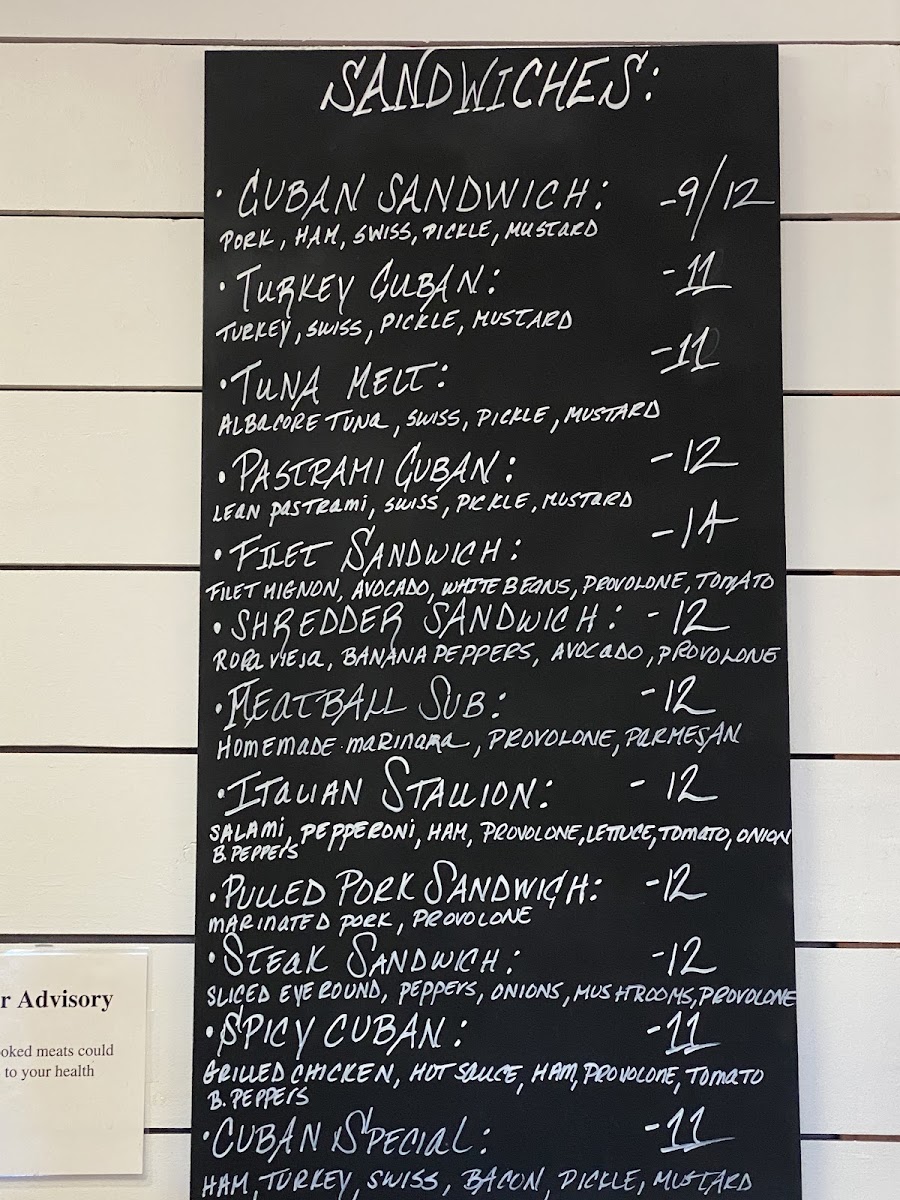 SANDWICHES:
• CUBAN SANDWICH: -9/12
PORK, HAM, SWISS, PICKLE, MUSTARD
• TURKEY CUBAN: -11
TURKEY, SWISS, PICKLE, MUSTARD
• TUNA MELT: -11
ALBACORE TUNA, SWISS, PICKLE, MUSTARD
• PASTRAMI CUBAN: -12
LEAN PASTRAMI, SWISS, PICKLE, MUSTARD
• FILET SANDWICH: -14
FILET MIGNON, AVOCADO, WHITE BEANS, PROVOLONE, TOMATO
• SHREDDER SANDWICH: -12
ROPA VIEJA, BANANA PEPPERS, AVOCADO, PROVOLONE
• MEATBALL SUB: -12
HOMEMADE MARINARA, PROVOLONE, PARMESAN
• ITALIAN STALLION: -12
SALAMI, PEPPERONI, HAM, PROVOLONE, LETTUCE, TOMATO, ONION
B. PEPPERS
• PULLED PORK SANDWICH: -12
MARINATED PORK, PROVOLONE
• STEAK SANDWICH: -12
SLICED EYE ROUND, PEPPERS, ONIONS, MUSHTROOMS, PROVOLONE
• SPICY CUBAN: -11
GRILLED CHICKEN, HOT SAUCE, HAM, PROVOLONE, TOMATO
B. PEPPERS
• CUBAN SPECIAL: -11
HAM, TURKEY, SWISS, BACON, PICKLE, MUSTARD
r Advisory
oked meats could
to your health